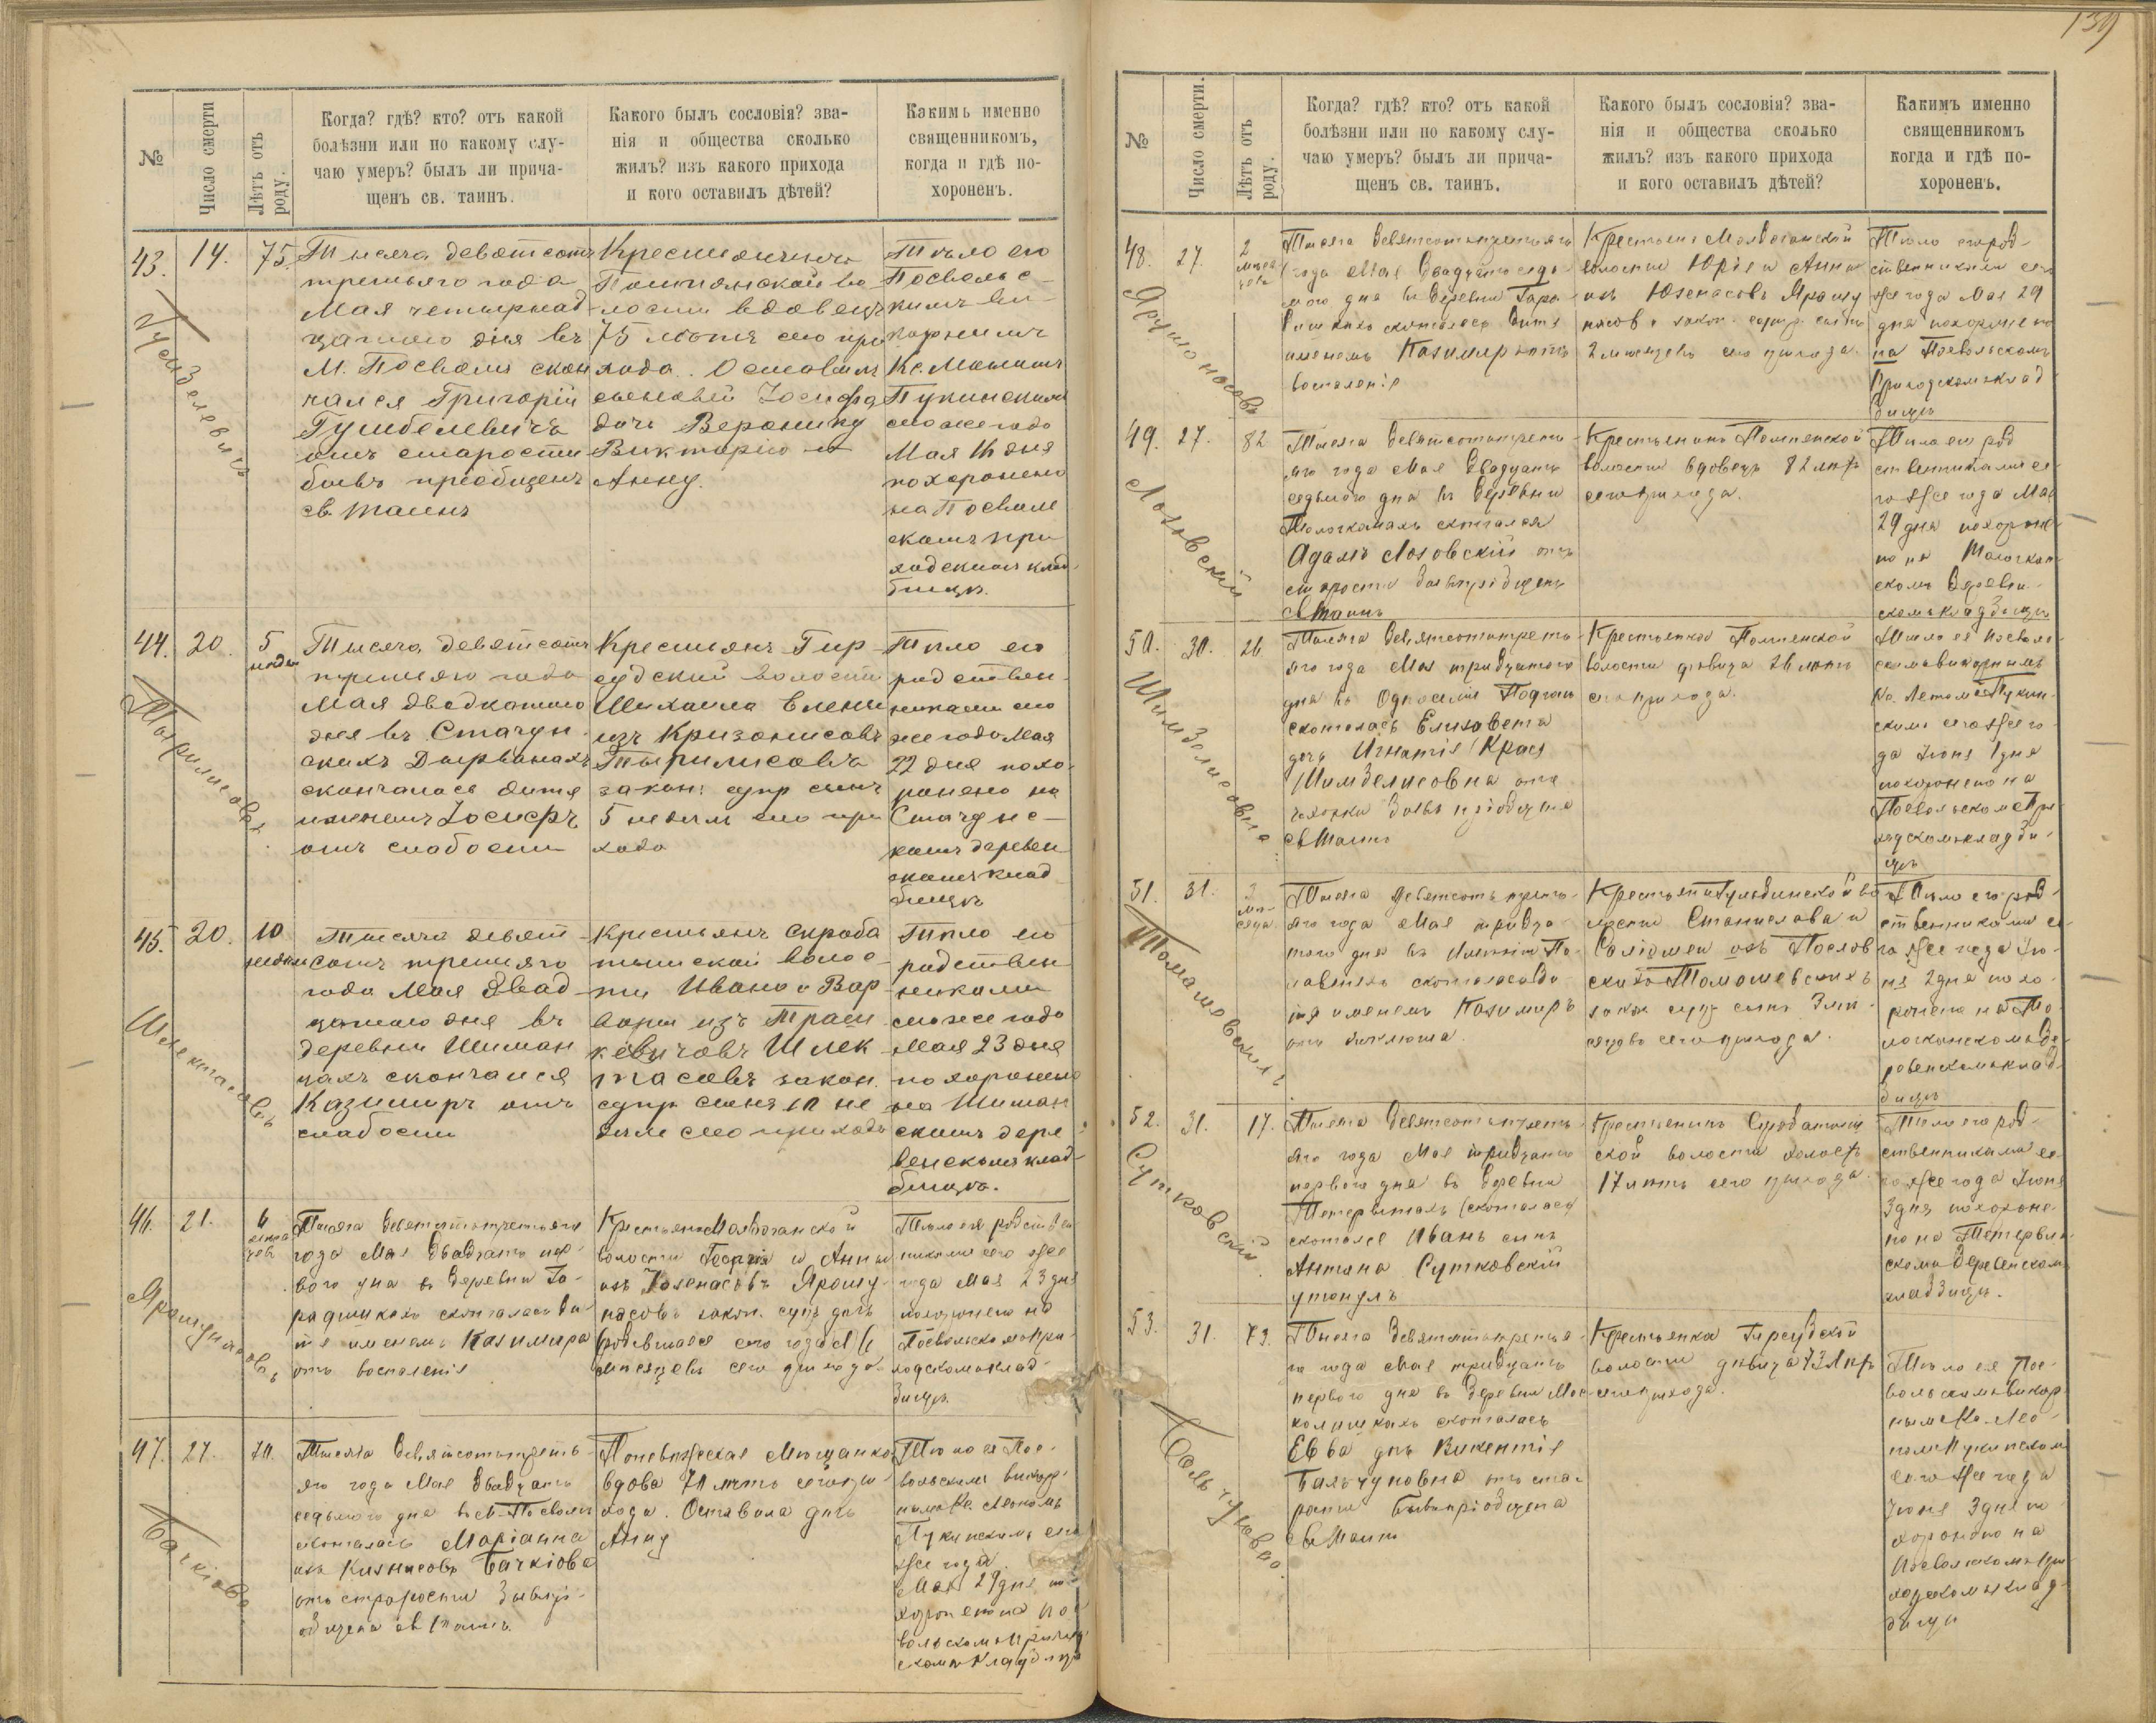 139
№
Число смерти
Лѣтъ отъ роду.
Когда? гдѣ? кто? отъ какой
болѣзни или по какому слу-
чаю умеръ? былъ ли прича-
щенъ св. таинъ.
Какого былъ сословія? зва-
нія и общества сколько
жилъ? изъ какого прихода
и кого оставилъ дѣтей?
Какимъ именно
священникомъ,
когда и гдѣ по-
хороненъ.
43.
14.
75.
Тысяча девятсотъ
третьяго года
Мая четырнад
цатаго дня въ
М. Посволь скон
чался Григорій
отъ старости
бывъ пріобщенъ
св. таинъ
волости вдовецъ
75 лѣтъ сего при
хода. Оставилъ
сыновей Іосифа
дочь Веронику
Викторію и
Анну.
Тѣло его
Посвольс-
кимъ ви-
карнимъ
Пукинскимъ
сего же года
Мая 16 дня
похоронено
на Посволь
скомъ при
ходскомъ клад
бищѣ.
44.
20.
5
недѣл
Тысяча девятсотъ
третьяго года
Мая двадцатаго
дня въ Стачун
скихъ
скончалось дитя
именемъ Іосифъ
отъ слабости
Крестьянъ Гир
судской волости
Михаила Елены
изъ Кризонисовъ
закон: супр сынъ
5 недѣль сего при
хода
Тѣло его
родствен
никами сего
же года Мая
22 дня похо
ронено на
Стачунс-
комъ деревен
скомъ клад
бищѣ
45.
20.
10
недѣли
Тысяча девят
сотъ третьяго
года Мая двад
цатаго дня въ
деревни Шиман
цахъ скончался
Казимиръ отъ
слабости
Крестьянъ Скроба
тишской волос-
ти Ивана и Вар
вары изъ
Шлек
тасовъ закон.
супр сына 10 не
дѣль сего прихода
Тѣло его
родствен
никами
сего же года
Мая 23 дня
похоронено
на Шиман
скомъ дере
венскомъ клад-
бищѣ.
46.
21.
Тысяча девятсотътретьяго
года Мая двадцать пер-
ваго дня въ деревни Го-
скончалась ди-
тя именемъ Казимира
отъ воспаленія
волости Георгія и Анны
изъ Юзенасовъ Ярошу-
насовъ закон. супр дочь
родившаяся сего года
мѣсяцевъ сего прихода
Тѣло ея родствен
никами сего же
года Мая 23 дня
похоронено на
Посвольскомъ при-
ходскомъ клад-
бищѣ.
47.
27.
70.
Тысяча девятсотътреть
яго года Мая двадцать
седьмого дня въ М. Посволь
скончалась Маріанна
изъ Бачкіова
отъ старости бывъ прі-
общена св таинъ
Поневѣжская Мѣщанка
вдова 70 лѣтъ сего при-
хода. Оставила дочь
Анну
Тѣло ея Пос-
вольскимъ викар-
нымъ Кс. Леономъ
Пукинскимъ сего
же года
Мая 29 дня по-
хоронено на Пос-
вольскомъ приход-
скомъ кладбищѣ
№
Число смерти.
Лѣтъ отъ роду.
Когда? гдѣ? кто? отъ какой
болѣзни или по какому слу-
чаю умеръ? былъ ли прича-
щенъ св. таинъ.
Какого былъ сословія? зва-
нія и общества сколько
жилъ? изъ какого прихода
и кого оставилъ дѣтей?
Какимъ именно
священникомъ
когда и гдѣ по-
хороненъ.
48.
27.
2
Тысяча девятсотътретьяго
года Мая двадцать седь-
мого дня въ деревни
скончалось дитя
именемъ Казимиръ отъ
воспаленія
волости Юрія и Анны
изъ Юзенасовъ Ярошу
насовъ закон. супр. сынъ
2 мѣсяцевъ сего прихода
Тѣло его род-
ственниками сего
же года Мая 29
дня похоронено
на Посвольскомъ
Приходскомъ клад
бищѣ
49.
27.
82
Лозовскій
Тысяча девятсотътреть
яго года Мая двадцать
седьмого дня въ деревни
скончался
Адамъ Лозовскій отъ
старости бывъ пріобщенъ
св таинъ
Крестьянинъ Помпянской
волости вдовецъ 82 лѣтъ
сего прихода.
Тѣло его род
ственниками се
го же года Мая
29 дня похороне
но на
скомъ деревен-
скомъ кладбищѣ
50.
30.
26
Тысяча девятсотътреть
яго года Мая тридцатого
дня въ
скончалась Елизавета
дочь Игнатія
Шимбелисовна отъ
чахотки бывъ пріобщена
св Таинъ
Крестьянка Помпянской
волости дѣвица 26 лѣтъ
сего прихода.
Тѣло ея Посволь
скимъ викарнимъ
Кс. Леономъ Пукин-
скимъ сего же го-
да Іюня 1 дня
похоронено на
Посвольскомъ при
ходскомъ кладби-
щѣ
51.
31.
Томашевскихъ
Тысяча девятсотъ треть-
яго года Мая тридца-
таго дня въ имѣніи По-
скончалось ди-
тя именемъ Казимиръ
отъ коклюша.
волости Станислава и
Саломеи изъ
Томашевскихъ
закон супр сынъ 3 мѣ-
сяцовъ сего прихода.
Тѣло его род-
ственниками се-
го же года Ію-
ня 2 дня похо-
ронено на
де-
ревенскомъ клад-
бищѣ
52.
31.
17.
Сутковскій
Тысяча девятсотътреть
яго года Мая тридцать
перваго дня въ деревни
скончался Иванъ сынъ
Антона Сутковскій
утонулъ
Крестьянинъ Скробатиш
ской волости холостъ
17 лѣтъ сего прихода.
Тѣло его род-
ственниками се
го же года Іюня
3 дня похороне-
но на Тетервин-
скомъ деревенскомъ
кладбищѣ.
53.
31.
73.
Бальчуновна
Тысяча девятсотътретья-
го года Мая тридцать
перваго дня въ деревни Мос
скончалась
Евва дочь Викентія
Бальчуновна отъ ста-
рости бывъ пріобщена
св Таинъ
Крестьянка Гирсудской
волости дѣвица 73 лѣтъ
сего прихода.
Тѣло ея Пос-
вольскимъ викар-
нымъ Кс. Лео-
номъ Пукинскимъ
сего же года
Іюня 3 дня по-
хоронено на
Посвольскомъ при-
ходскомъ клад-
бищѣ